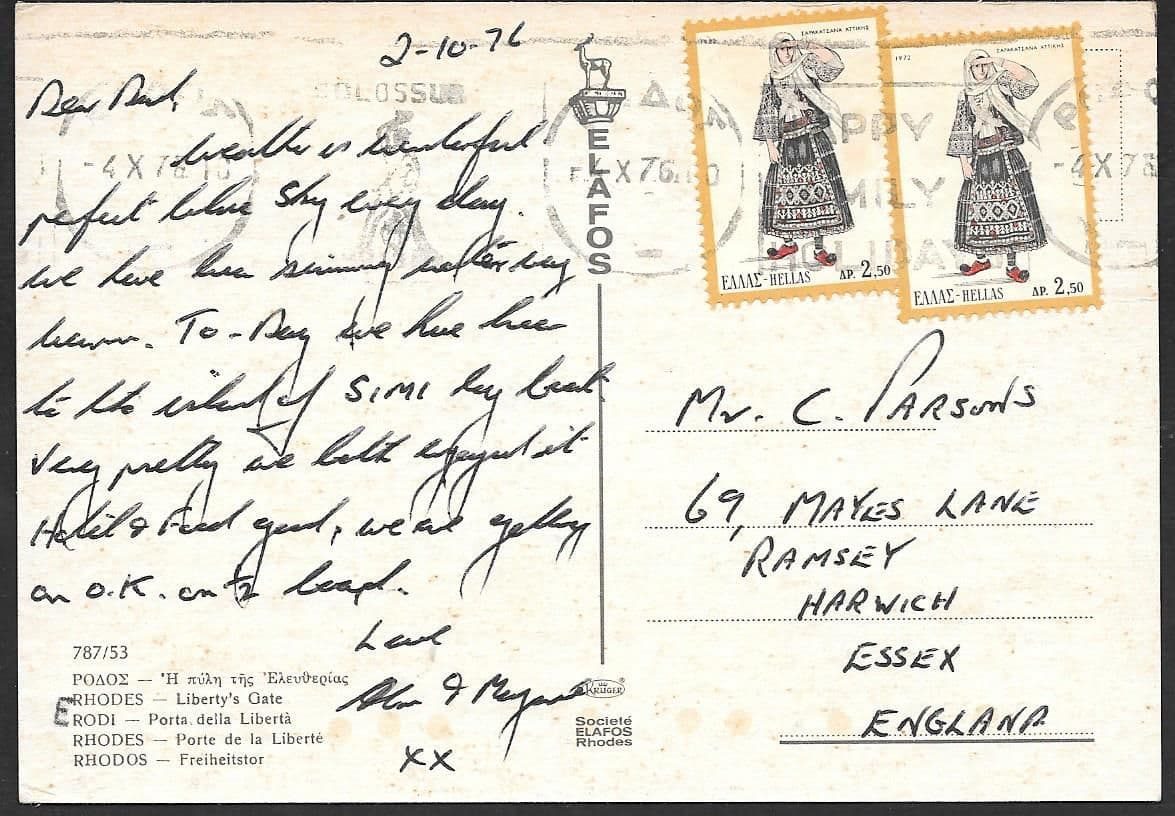 2-10-76
Dear Dad,
weather is wonderful
perfect blue sky every day.
we have been swimming water very
warm. To-Day we have been
to the island of SIMI by boat
Very pretty we both enjoyed it
Hotel & Food good, we are getting
on O.K. on ½ board.
Love
Alan & Margaret
XX
787/53
ΡΟΔΟΣ — Ἡ πύλη τῆς Ἐλευθερίας
RHODES — Liberty's Gate
RODI — Porta della Libertà
RHODES — Porte de la Liberté
RHODOS — Freiheitstor
E
ELAFOS
KRUGER®
Societé
ELAFOS
Rhodes
COLOSSUS
-4 X 76 18
X 76
PPY
MILY
HOLIDAY
-4 X 76
ΣΑΡΑΚΑΤΣΑΝΑ ΑΤΤΙΚΗΣ
ΕΛΛΑΣ-HELLAS ΔΡ. 2,50
1972 ΣΑΡΑΚΑΤΣΑΝΑ ΑΤΤΙΚΗΣ
ΕΛΛΑΣ-HELLAS ΔΡ. 2,50
Mr. C. PARSONS
69, MAYES LANE
RAMSEY
HARWICH
ESSEX
ENGLAND